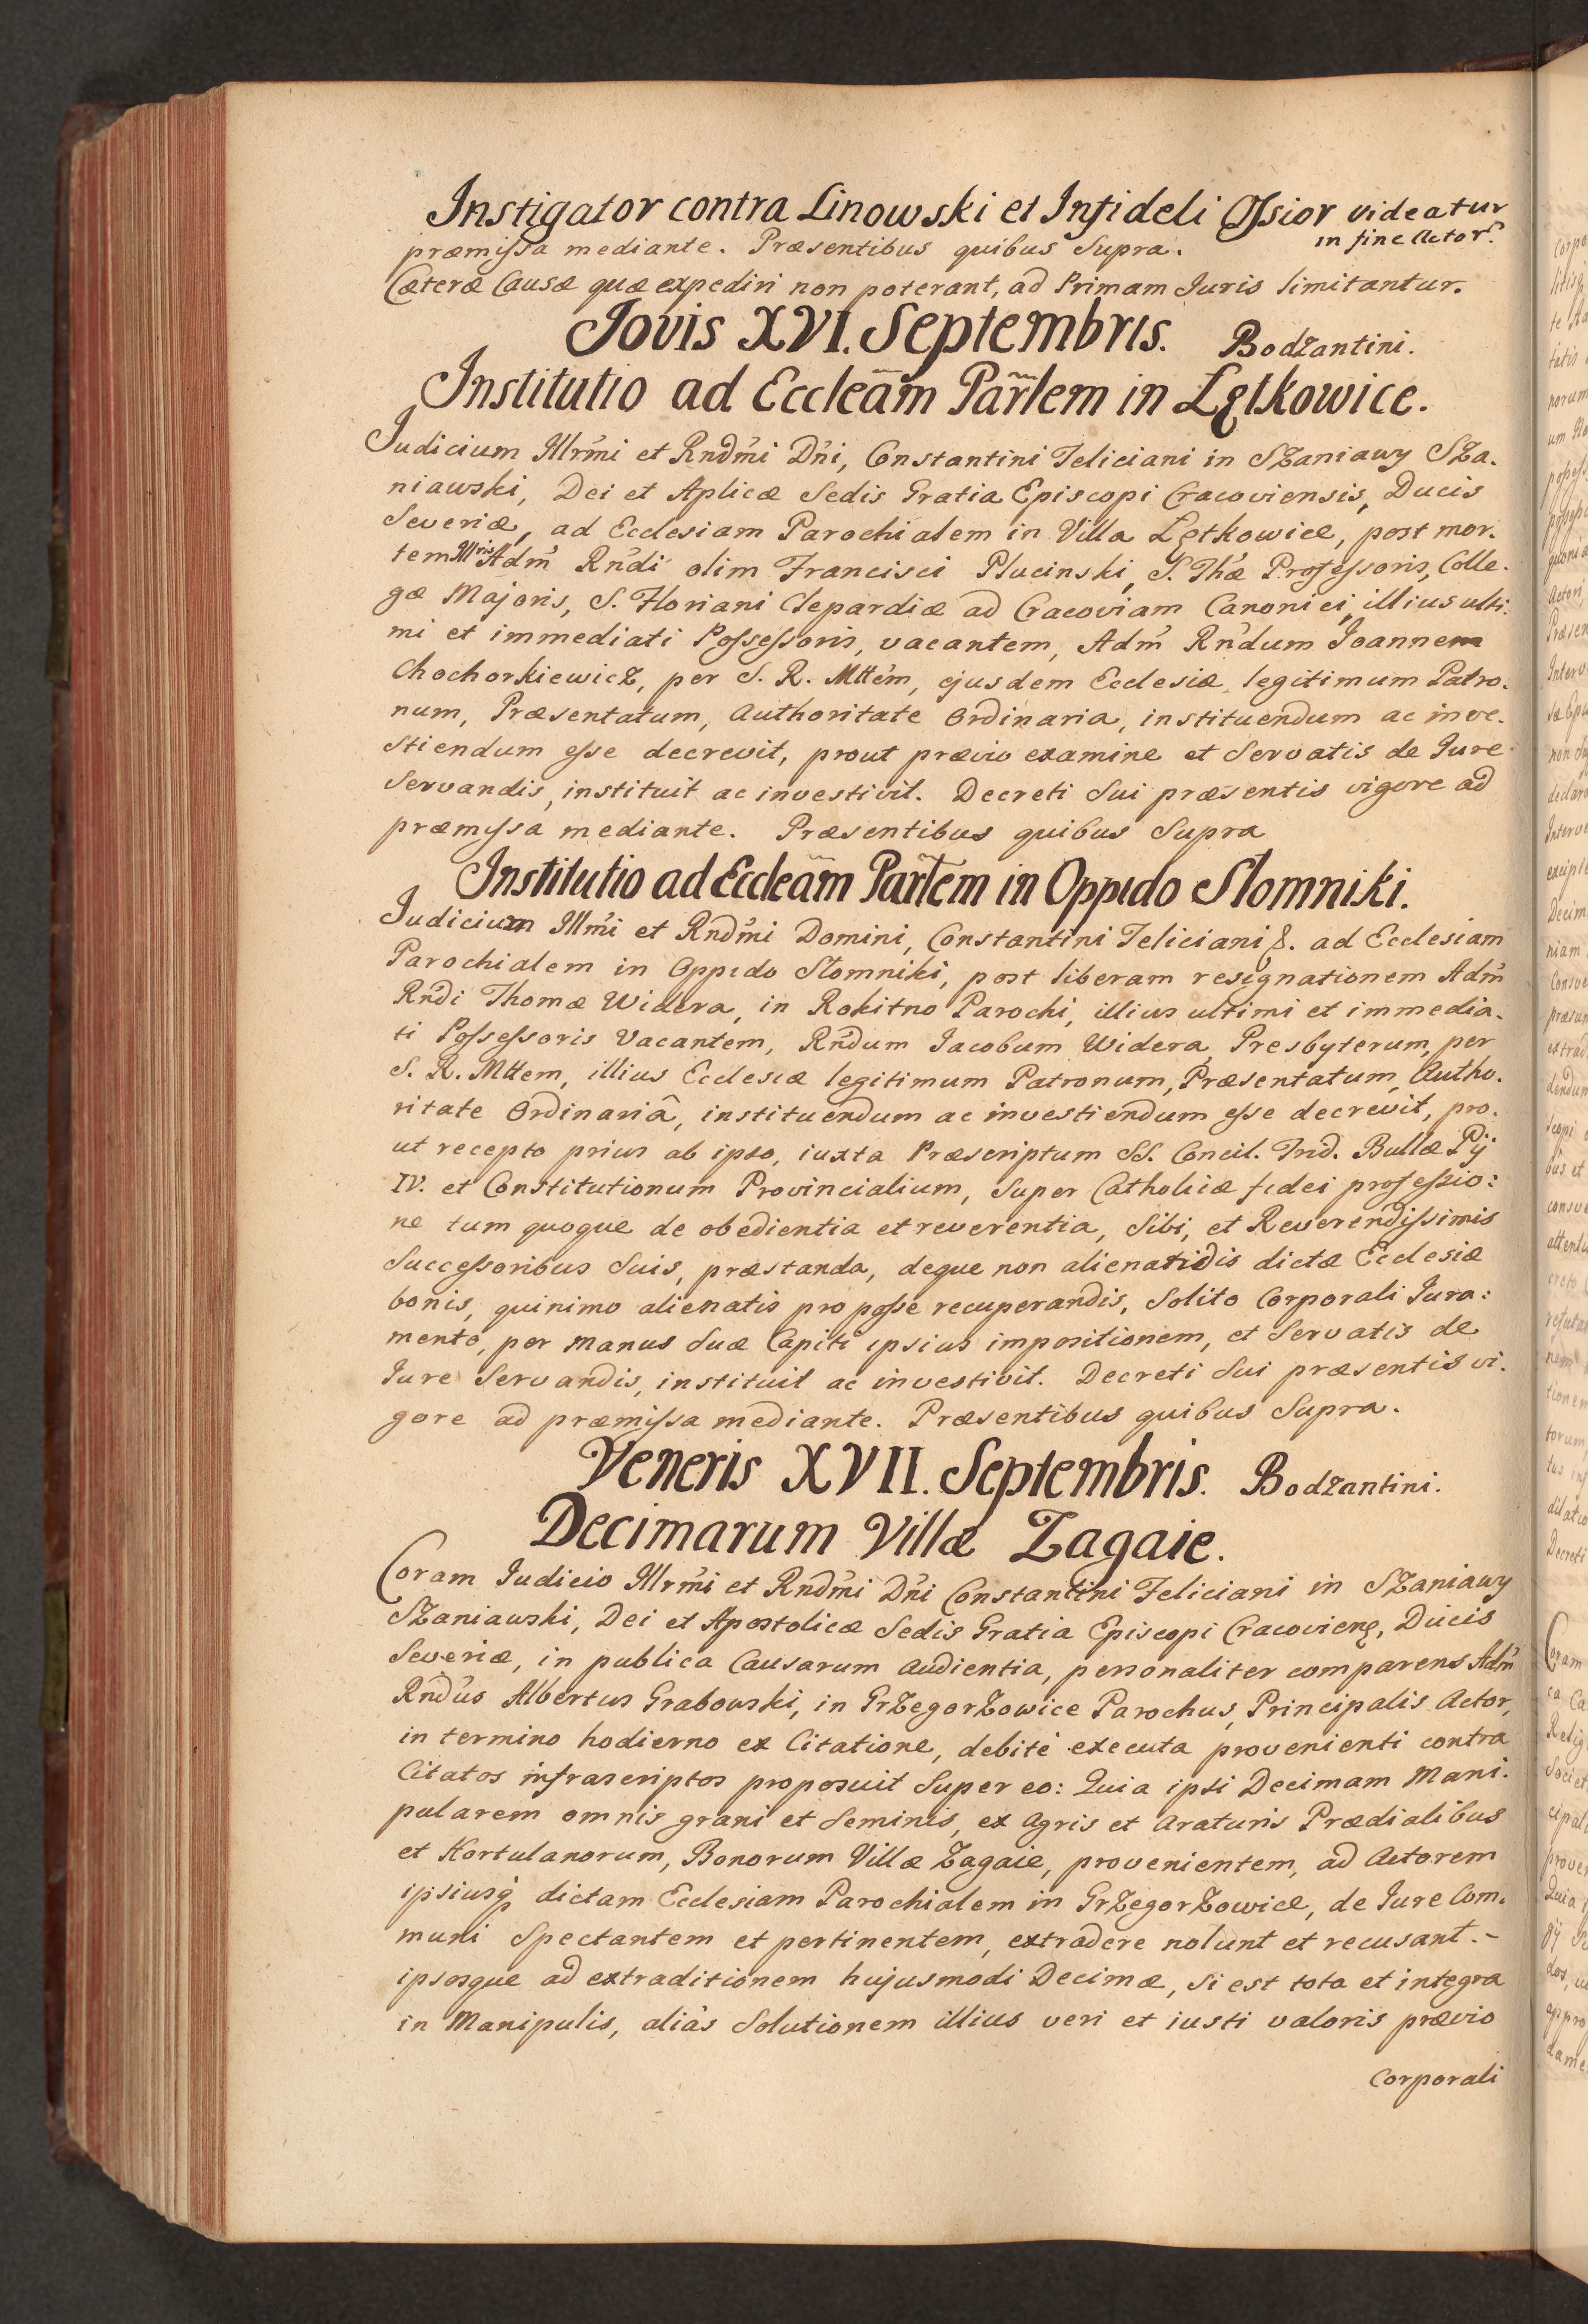 Instigator contra Linowski et Infideli Ossior videatur
in fine Actor.
præmissa mediante. Præsentibus quibus Supra.
Cæteræ Causæ quæ expediri non poterant, ad Primam Juris limitantur.
Jovis XVI. Septembris. Bodzantini.
Institutio ad Eccleãm Par̃lem in Lętkowice.
Judicium Illrmi et Rndmi Dni, Constantini Feliciani in Szaniawy Sza.
niawski, Dei et Aplicæ Sedis Gratia Episcopi Cracoviensis, Ducis
Severiæ, ad Ecclesiam Parochialem in Villa Lętkowice, post mor.
tem Illris Adm Rndi olim Francisci Plucinski, S. Thæ Professoris, Colle.
gæ Majoris, S. Floriani Clepardiæ ad Cracoviam Canonici, illius ulti.
mi et immediati Possessoris, vacantem, Adm Rndum Joannem
Chochorkiewicz, per S. R. Mttem, ejusdem Ecclesiæ legitimum Patro.
num, Præsentatum, Authoritate Ordinaria, instituendum ac inve.
stiendum esse decrevit, prout prævio examine et Servatis de Jure
Servandis, instituit ac investivit. Decreti Sui præsentis vigore ad
præmyssa mediante. Præsentibus quibus Supra
Institutio ad Eccleãm Par̃lem in Oppido Slomniki.
Judicium Illmi et Rndmi Domini, Constantini Feliciani &. ad Ecclesiam
Parochialem in Oppido Slomniki, post liberam resignationem Adm
Rndi Thomæ Widera, in Rokitno Parochi, illius ultimi et immedia.
ti Possessoris Vacantem, Rndum Jacobum Widera, Presbyterum, per
S. R. Mttem, illius Ecclesiæ legitimum Patronum, Præsentatum, Autho.
ritate Ordinariâ, instituendum ac investiendum esse decrevit, pro.
ut recepto prius ab ipso, iuxta Præscriptum SS. Concil. Trid. Bullæ Pij
IV. et Constitutionum Provincialium, Super Catholicæ fidei professio:
ne tum quoque de obedientia et reverentia, Sibi, et Reverendissimis
Successoribus Suis, præstanda, deque non alienatidis dictæ Ecclesiæ
bonis, quinimo alienatis pro posse recuperandis, Solito Corporali Jura:
mento, per manus Suæ Capiti ipsius impositionem, et Servatis de
Jure Servandis, instituit ac investivit. Decreti Sui præsentis vi.
gore ad præmissa mediante. Præsentibus quibus Supra.
Veneris XVII. Septembris. Bodzantini.
Decimarum Villæ Zagaie.
Coram Judicio Illrmi et Rndmi Dni Constantini Feliciani in Szaniawy
Szaniawski, Dei et Apostolicæ Sedis Gratia Episcopi Cracovienę, Ducis
Severiæ, in publica Causarum Audientia, personaliter comparens Adm
Rndus Albertus Grabowski, in Grzegorzowice Parochus, Principalis Actor,
in termino hodierno ex Citatione, debitè executa provenienti contra
Citatos infrascriptos proposuit Super eo: Quia ipsi Decimam Mani.
pularem omnis grani et Seminis, ex Agris et Araturis Prædialibus
et Hortulanorum, Bonorum Villæ Zagaie, provenientem, ad Actorem
ipsiusq; dictam Ecclesiam Parochialem in Grzegorzowice, de Jure Com.
muni Spectantem et pertinentem, extradere nolunt et recusant.-
ipsosque ad extraditionem hujusmodi Decimæ, Si est tota et integra
in Manipulis, aliàs Solutionem illius veri et iusti valoris prævio
Corporali